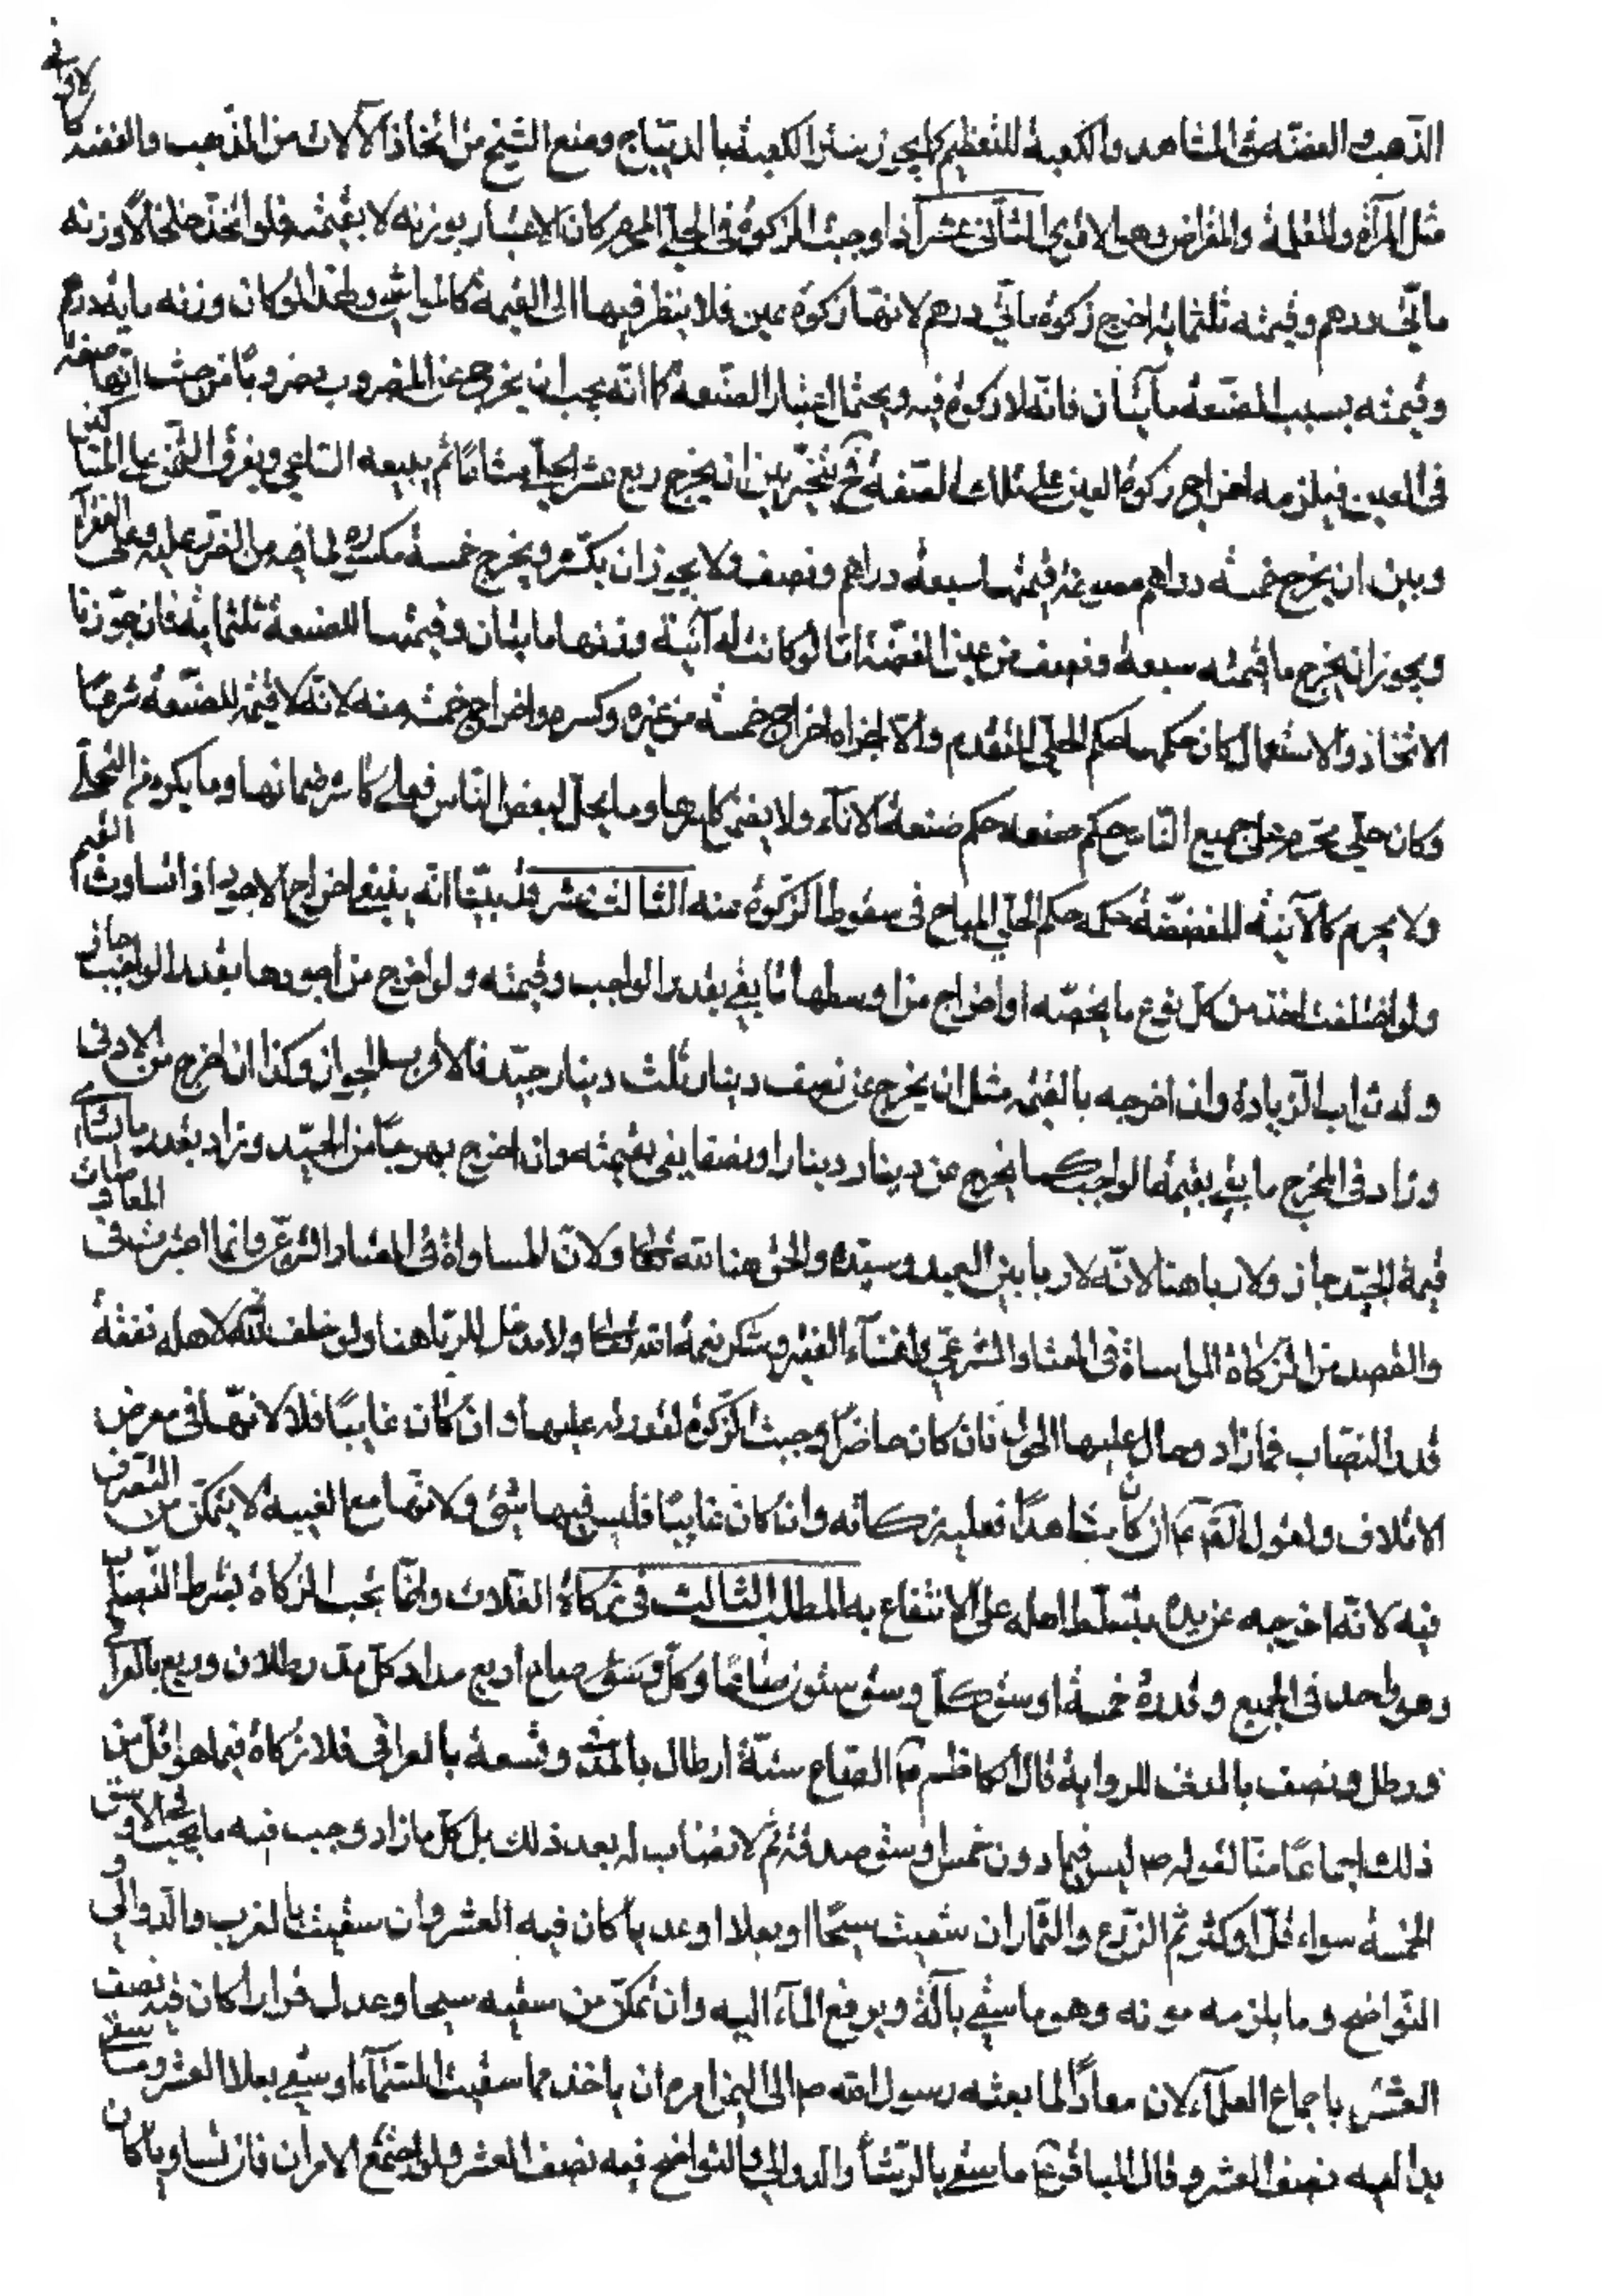 لاواني
الذهب والفضة مثل المشاهد والكعبة للتعظيم كما يجوز ستر الكعبة بالديباج ومنع الشيخ من اتخاذ الآلات من الذهب والفضة
مثل المرآة والمقلمة والمقراض وهو الاقوى الثاني عشر اذا اوجبنا الزكوة في الحلي المحرم كان الاعتبار بوزنه لا بقيمته فلو اتخذ خلخالا وزنه
مائتي درهم وقيمته ثلثمائة اخرج زكوة مائتي درهم لانها زكوة عين فلا ينظر فيها الى القيمة كالمواشي ولهذا لو كان وزنه مايه درهم
وقيمته بسبب الصنعة مائتان فانه لا زكوة فيه ويحتمل اعتبار الصنعة كما انه يجب ان يخرج عن المضروب مضروبا من حيث انها صفة
في العين فيلزمه اخراج زكوة العين على تلك الصفة فح يتخير بين ان يخرج ربع عشر الحلي مشاعا ثم يبيعه الساعي ويفرق الثمن على المستحقين
وبين ان يخرج خمسة دراهم مصوغة قيمتها سبعة دراهم ونصف ولا يجوز ان يكسر ويخرج خمسة مكسرة لما فيه من الضرر عليه وعلى الفقراء
ويجوز ان يخرج ما قيمته سبعة ونصف من غير الفضة اما لو كانت له آنية وزنها مايتان وقيمتها للصنعة ثلثمايه فان جوزنا
الاتخاذ والاستعمال كان حكمها حكم الحلي المتقدم والا اجزاه اخراج خمسة من غيره وكسره واخراج خمسة منه لانه لا قيمة للصنعة شرعا
وكان حلي محرم على جميع الناس حكم صنعته حكم صنعة الاناء ولا يضمن كاسرها وما يحل لبعض الناس فعلى كاسر ضمانها وما يكره من التحلي
ولا يحرم كالآنية المفضضة حكمه حكم الحلي المباح في سقوط الزكوة عنه الثالث عشر قد بينا انه ينبغي اخراج الاجود اذا تساوت القيم
ولو اختلفت اخذ من كل نوع ما يخصه او اخراج من اوسطها ما يفي بقدر الواجب وقيمته ولو اخرج من اجودها بقدر الواجب جاز
وله ثواب الزيادة وان اخرجه بالقيمة مثل ان يخرج عن نصف دينار ثلث دينار جيد فالاقرب الجواز وكذا ان اخرج من الادنى
وزاد في المخرج ما يفي بقيمة الواجب كما يخرج عن دينار دينارا ونصفا يفي بقيمته وان اخرج بهرجا من الجيد وزاد بقدر ما يساوي
قيمة الجيد جاز ولا ربا هنا لانه لا ربا بين العبد وسيده والحق هنا لله تعالى ولان المساواة في المعيار الشرعي وانما اعتبرت في المعاوضات
والقصد من الزكاة المواساة في المعيار الشرعي واغناء الفقير وشكر نعمة الله تعالى ولا مدخل للربا هنا ولو خلف لاهله نفقة
قدر النصاب فما زاد وحال عليها الحول فان كان حاضرا وجبت الزكوة لقدرته عليها وان كان غايبا فلا لانها في معرض
الاتلاف ولقول الصادق ع ان كان شاهدا فعليه زكاته وان كان غايبا فليس فيها شئ ولانها مع الغيبة لا يتمكن من التصرف
فيه لانه اخرجه عن يده بتسلط اهله على الانتفاع به المطلب الثالث في زكاة الغلات وانما يجب الزكاة بشرط النصاب
وهو واحد في الجميع وقدره خمسة اوسق كل وسق ستون صاعا وكل صاع اربع امداد كل مد رطلان وربع بالعراقي
ورطل ونصف بالمدني للرواية قال الكاظم ع الصاع ستة ارطال بالمدني وتسعة بالعراقي فلا زكاة فيما هو اقل من
ذلك اجماعا منا لقوله ص ليس فيما دون خمس اوسق صدقة ثم لا نصاب له بعد ذلك بل كل ما زاد وجب فيه ما يجب في الاوسق
الخمسة سواء قل او كثر ثم الزرع والثمار ان سقيت سيحا او بعلا او عديا كان فيه العشر وان سقيت بالغرب والدوالي و
النواضح وما يلزمه مونه وهو ما سقي بآلة ويرفع الماء اليه وان تمكن من سقيه سيحا وعدل ضرارا كان فيه نصف
العشر باجماع العلماء لان معاذا لما بعثه رسول الله ص الى اليمن امره ان ياخذ مما سقيت السماء او سقي بعلا العشر وما سقي
بدالية نصف العشر وقال الباقر ع ما سقي بالرشا والدوالي والنواضح فيه نصف العشر ولو اجتمع الامران فان تساويا كان